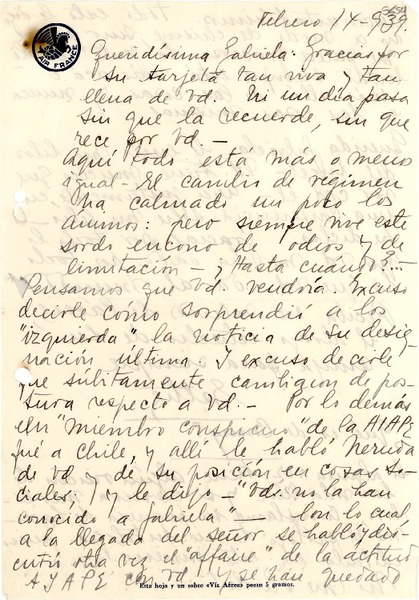 Febrero 14-939.
AIR FRANCE
Queridísima Gabriela: Gracias por
su tarjeta tan viva y tan
llena de Vd. Ni un día pasa
sin que la recuerde, sin que
rece por Vd.-
Aquí todo está más o menos
igual- El cambio de régimen
ha calmado un poco los
ánimos: pero siempre vive este
sordo entorno de odios y de
limitación - ¡Hasta cuándo?...-
Pensamos que Vd. vendría. Excuso
decirle cómo sorprendió a los
"izquierda" la noticia de su desig-
nación última. Y excuso decirle
que súbitamente cambiaron de pos-
tura respecto a Vd.- Por lo demás
un "miembro conspicuo" de la AIAPE
fué a Chile, y allí le habló Neruda
de Vd y de su posición en cosas so-
ciales; y le dijo-"Vds. no la han
conocido a Gabriela"- Con lo cual
a la llegada del señor se habló y dis-
cutió otra vez el "affaire" de la actitud
AIAPE con Vd y se han quedado
Esta hoja y un sobre «Vic Aérea» pesan 5 gramos.